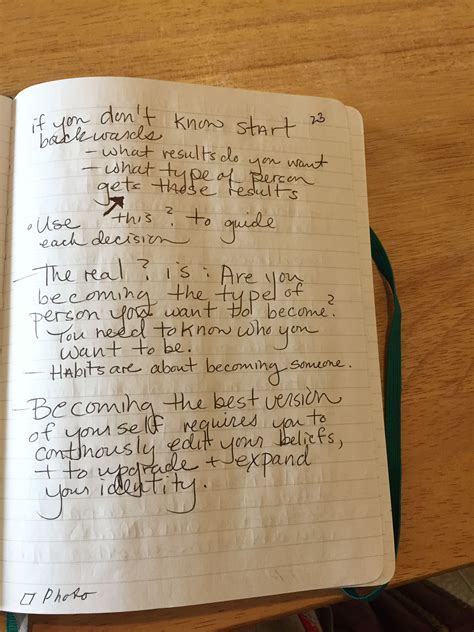 23
if you don't know start
backwards
- what results do you want
- what type of person
gets those results
• Use this? to guide
each decision
- The real? is: Are you
becoming the type of
person you want to become?
You need to know who you
want to be.
- Habits are about becoming someone.
- Becoming the best version
of yourself requires you to
continously edit your beliefs,
+ to upgrade + expand
your identity.
□ Photo